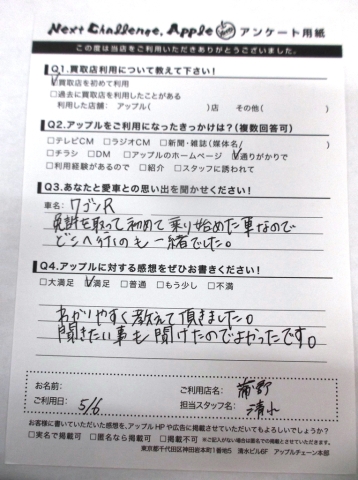 Next Challenge, Apple アンケート用紙
この度は当店をご利用いただきありがとうございました。
Q1.買取店利用について教えて下さい!
□買取店を初めて利用
□過去に買取店を利用したことがある
利用した店舗: アップル( )店 その他( )
Q2.アップルをご利用になったきっかけは?(複数回答可)
□テレビCM □ラジオCM □新聞・雑誌(媒体名 )
□チラシ □DM □アップルのホームページ □通りがかりで
□利用経験があるので □紹介 □スタッフに誘われて
Q3.あなたと愛車との思い出を聞かせください!
車名: ワゴンR
免許を取って初めて乗り始めた車なので
どこへ行くのも一緒でした。
Q4.アップルに対する感想をぜひお書きください!
□大満足 □満足 □普通 □もう少し □不満
わかりやすく教えて頂きました。
聞きたい事も聞けたのでよかったです。
お名前:
ご利用店名: 蒲郡
ご利用日: 5/6
担当スタッフ名: 清水
お客様に書いていただいた感想を、アップルHPや広告に掲載させていただいてもよろしいでしょうか?
□実名で掲載可 □匿名なら掲載可 □掲載不可 ※ご記入がない場合は匿名での掲載とさせていただきます。
東京都千代田区神田岩本町1番地5 清水ビル6F アップルチェーン本部